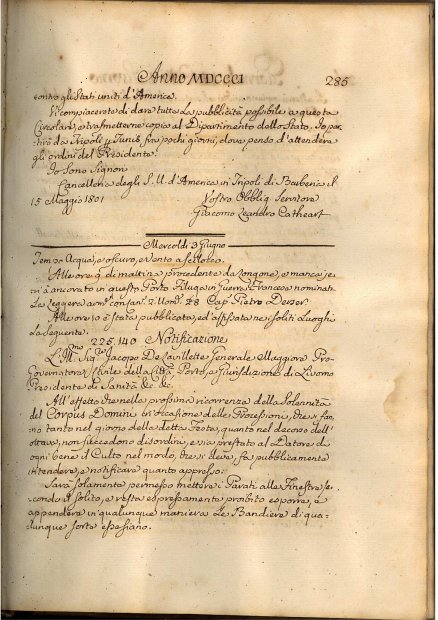 Anno MDCCCI
285
contro gli Stati uniti d'America.
Vi compiacerete di dare tutta la pubblicità possibile a questa
Circolare, e trasmetterne copia al Dipartimento dello Stato. Io par-
tirò da Tripoli p. Tunis, fra pochi giorni, dove penso d'attendere
gli ordini del Presidente.
Io Sono Signori
Cancelleria degli S. U. d'America in Tripoli di Barberia il
15 Maggio 1801
Vostro Obblig. Servitore
Giacomo Leandro Cathcart
Mercoldì 3 Giugno
Temp.o Acqua, e oscuro, e vento a
Alle ore 9. di mattina, procedente da e je-
ri à ancorato in questo Porto Aluga in Guerra Francese nominat.
La Leggera arm. con Can. 2. Uom. 28 Cap. Pietro
Alle ore 10 è stata pubblicata, ed affissata nei soliti Luoghi
La Seguente.
225.140 Notificazione
L'Ill.mo Sig.re Jacopo De Lavillette Generale Maggiore Pro-
Governatore Civile della Città, Porto, e Giurisdizione di Livorno
Presidente di Sanità &c. &c.
All'effetto che nella prossima ricorrenza della Solennità
del Corpus Domini in occasione delle Processioni, che si fan-
no tanto nel giorno della detta Festa, quanto nel decorso dell'
ottava, non succedono disordini, e sia prestato al Datore di
ogni bene il Culto nel modo, che si deve, fa pubblicamente
intendere, e notificare quanto appresso:
Sarà solamente permesso mettere i Parati alle Finestre se-
condo il solito, e resta espressamente proibito esporre, e
appendere in qualunque maniera le Bandiere di qua-
lunque sorte esse siano.